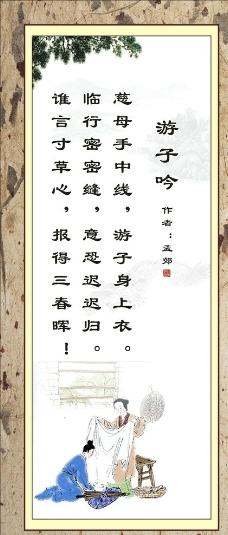 游子吟
作者：孟郊
慈母手中线，游子身上衣。
临行密密缝，意恐迟迟归。
谁言寸草心，报得三春晖！